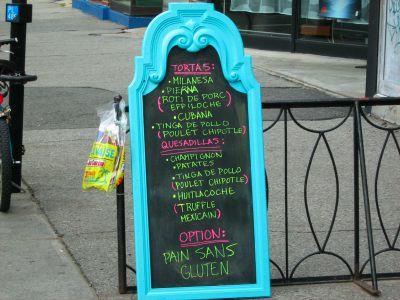 TORTAS:
• MILANESA
• PIERNA
(ROTI DE PORC)
EPPILOCHE
• CUBANA
• TINGA DE POLLO
(POULET CHIPOTLE)
QUESADILLAS:
• CHAMPIGNON
PATATES
• TINGA DE POLLO
(POULET CHIPOTLE)
• HUITLACOCHE
(TRUFFLE
MEXICAIN)
OPTION:
PAIN SANS
GLUTEN